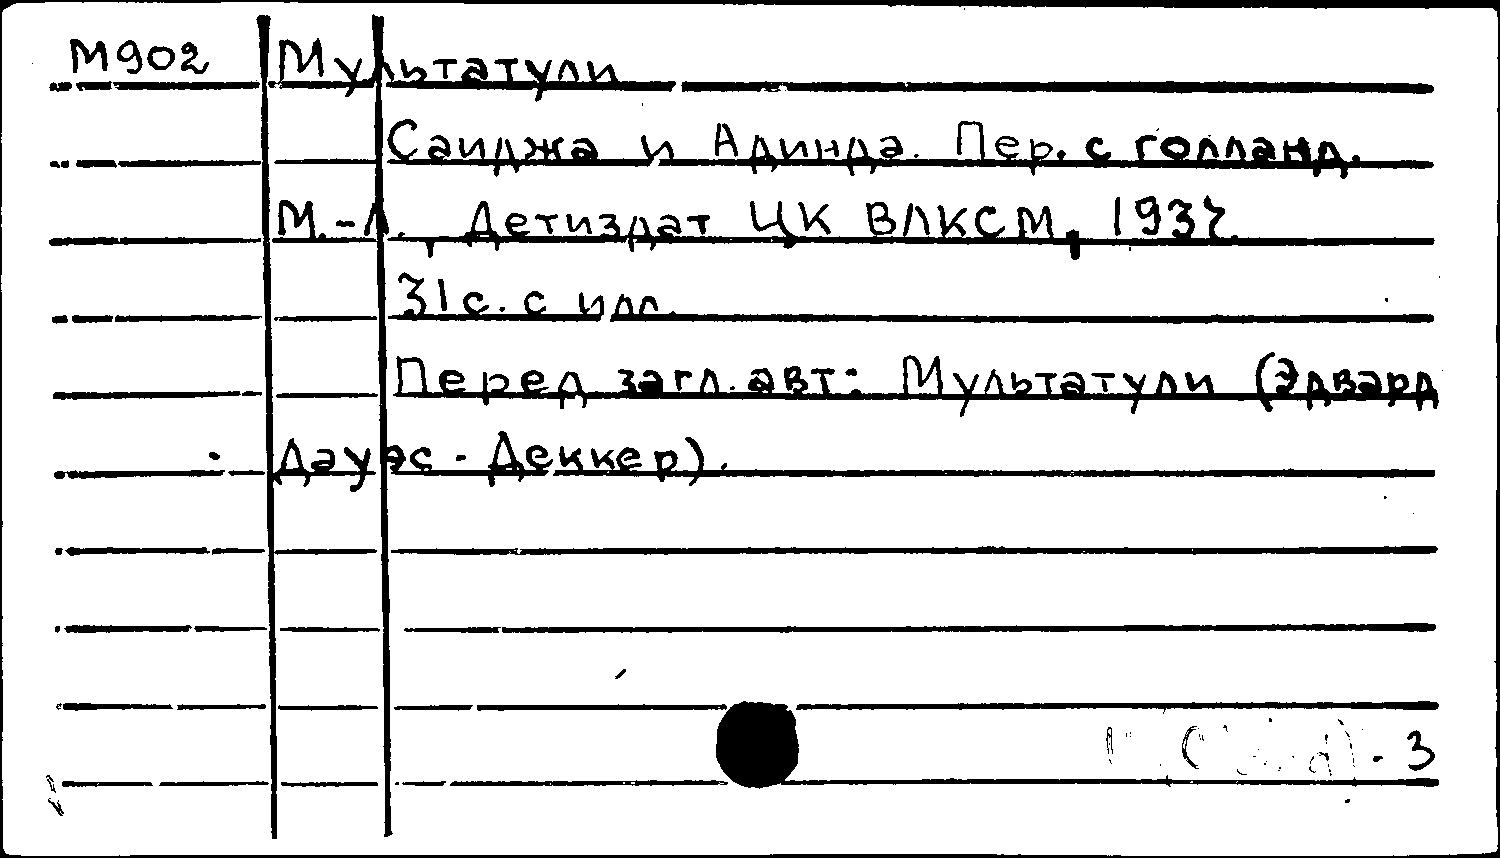 М902 Мультатули
Саиджа и Адинда. Пер. с голланд.
М.-Л., Детиздат ЦК ВЛКСМ, 1937.
31с. с илл.
Перед загл. авт: Мультатули (Эдвард
Дауэс - Деккер).